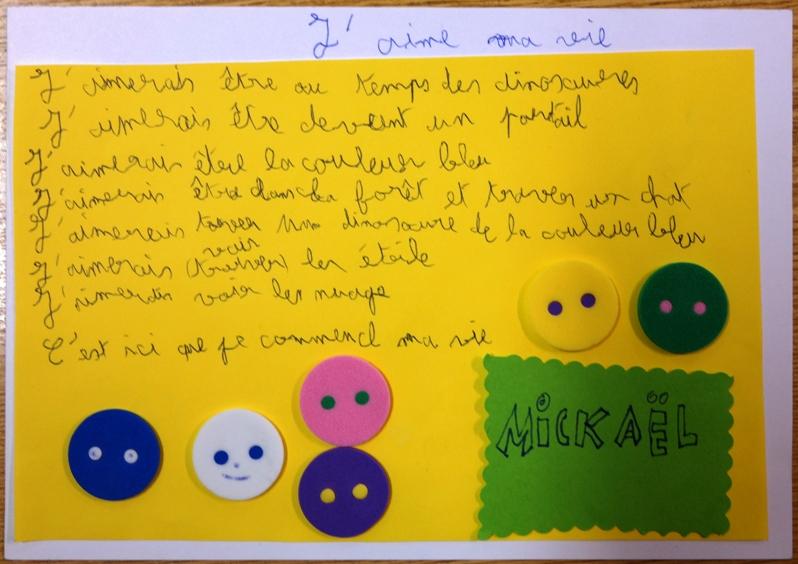 J'aime ma vie
J'aimerais être au temps des dinosaures
J'aimerais être devant un portail
J'aimerais être la couleur bleu
J'aimerais être dans la forêt et trouver un chat
J'aimerais trouver un dinosaure de la couleur bleu
voir
J'aimerais (trouver) les étoile
J'aimerais voir les nuage
C'est ici que je commend ma vie
MICKAËL